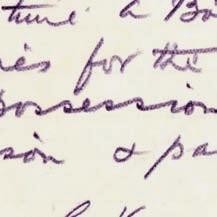 ture. a Bo
ies for the
possession
son & pa